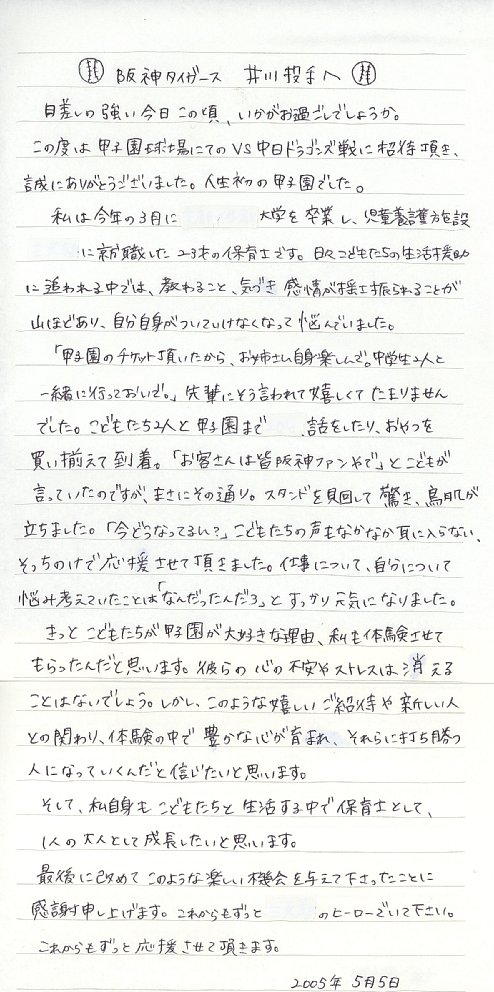 阪神タイガース 井川投手へ
日差しの強い今日この頃、いかがお過ごしでしょうか。
この度は甲子園球場にてのVS中日ドラゴンズ戦に招待頂き、
誠にありがとうございました。人生初の甲子園でした。
私は今年の3月に 大学を卒業し、児童養護施設
に就職した23才の保育士です。日々こどもたちの生活援助
に追われる中では、教わること、気づき 感情が揺さ振られることが
山ほどあり、自分自身がついていけなくなって悩んでいました。
「甲子園のチケット頂いたから、お姉さん自身楽しんで。中学生2人と
一緒に行っておいで。」先輩にそう言われて嬉しくてたまりません
でした。こどもたち2人と甲子園まで 話をしたり、おやつを
買い揃えて到着。「お客さんは皆阪神ファンやで」とこどもが
言っていたのですが、まさにその通り。スタンドを見回して驚き、鳥肌が
立ちました。「今どうなってるん?」こどもたちの声もなかなか耳に入らない、
そっちのけで応援させて頂きました。仕事について、自分について
悩み考えていたことは「なんだったんだろ」とすっかり元気になりました。
きっとこどもたちが甲子園が大好きな理由、私も体験させて
もらったんだと思います。彼らの心の不安やストレスは消える
ことはないでしょう。しかし、このような嬉しいご招待や新しい人
との関わり、体験の中で豊かな心が育まれ、それらに打ち勝つ
人になっていくんだと信じたいと思います。
そして、私自身もこどもたちと生活する中で保育士として、
1人の大人として成長したいと思います。
最後に改めてこのような楽しい機会を与えて下さったことに
感謝申し上げます。これからもずっと のヒーローでいて下さい。
これからもずっと応援させて頂きます。
2005年 5月5日